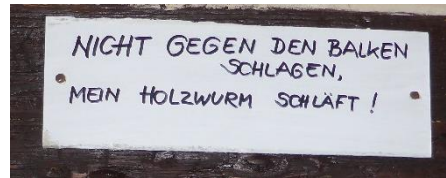 NICHT GEGEN DEN BALKEN
SCHLAGEN,
MEIN HOLZWURM SCHLÄFT !